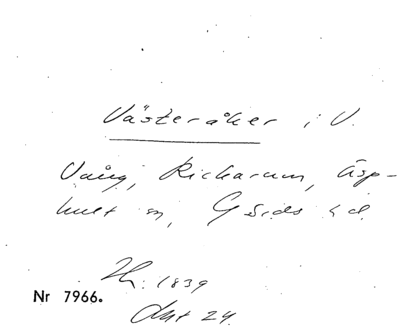 Västeråker i V.
Vång, Rickarum, Äsp-
hult sn, Gärds hd.
Hr. 1839
Nr 7966.
Okt 24.